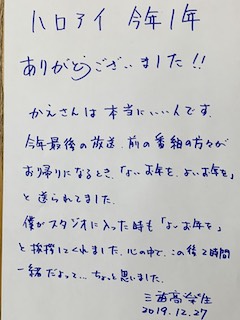 ハロアイ 今年1年
ありがとうございました!!
かえさんは本当にいい人です。
今年最後の放送、前の番組の方々が
お帰りになるとき、「よいお年を、よいお年を」
と送られてました。
僕がスタジオに入った時も「よいお年を」
と挨拶してくれました。心の中で、この後2時間
一緒だよって…ちょっと思いました。
三浦高学生
2019.12.27